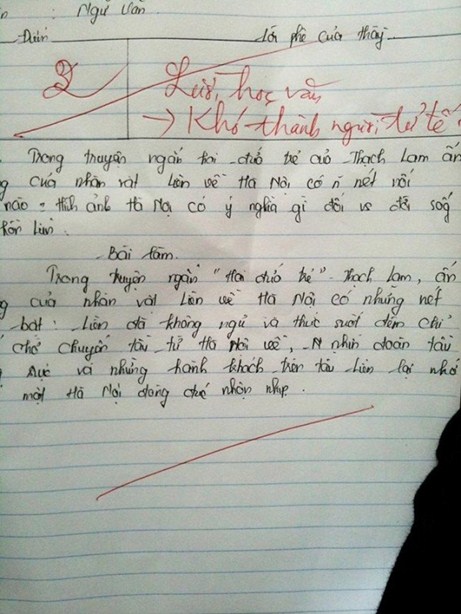 : Ngữ Văn
Điểm Lời phê của thầy
2 Lười học văn
→ Khó thành người tử tế
Trong truyện ngắn hai đứa trẻ của Thạch Lam ấn
g của nhân vật Liên về Hà Nội có n nét nổi
nào = hình ảnh Hà Nội có ý nghĩa gì đối vs đời sống
hồn Liên.
Bài làm.
Trong truyện ngắn "Hai đứa trẻ" Thạch Lam, ấn
g của nhân vật Liên về Hà Nội có những nét
bật: Liên đã không ngủ và thức suốt đêm chỉ
chờ chuyến tàu từ Hà Nội về, nhìn đoàn tàu
rực và những hành khách trên tàu Liên lại nhớ
một Hà Nội đông đúc nhộn nhịp.